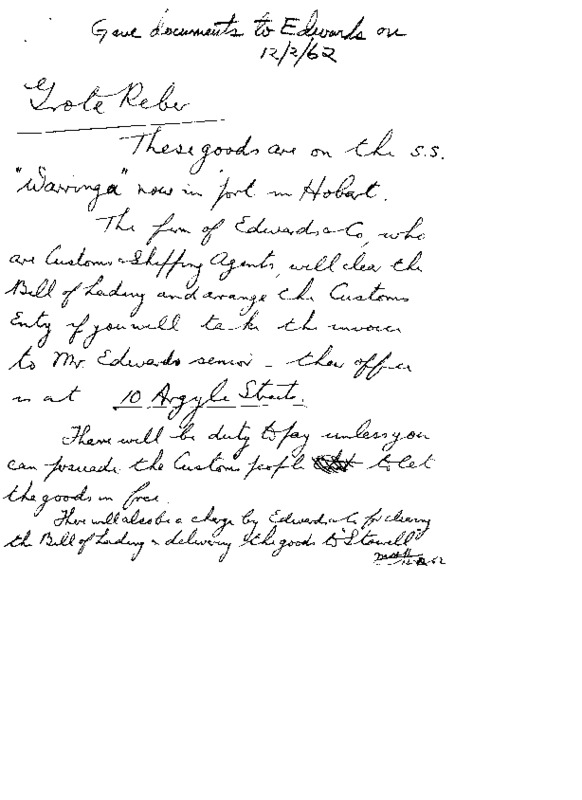 Gave documents to Edwards on
12/2/62
Grote Reber
These goods are on the S.S.
"Warringa" now in port in Hobart.
The firm of Edwards & Co, who
are Customs & Shipping Agents, will clear the
Bill of Lading and arrange the Customs
Entry if you will take the invoice
to Mr. Edwards senior - their office
is at 10 Argyle Street.
There will be duty to pay unless you
can persuade the Customs people to let
the goods in free.
There will also be a charge by Edwards & Co for clearing
the Bill of Lading & delivering the goods to "Stowell"
12.2.62